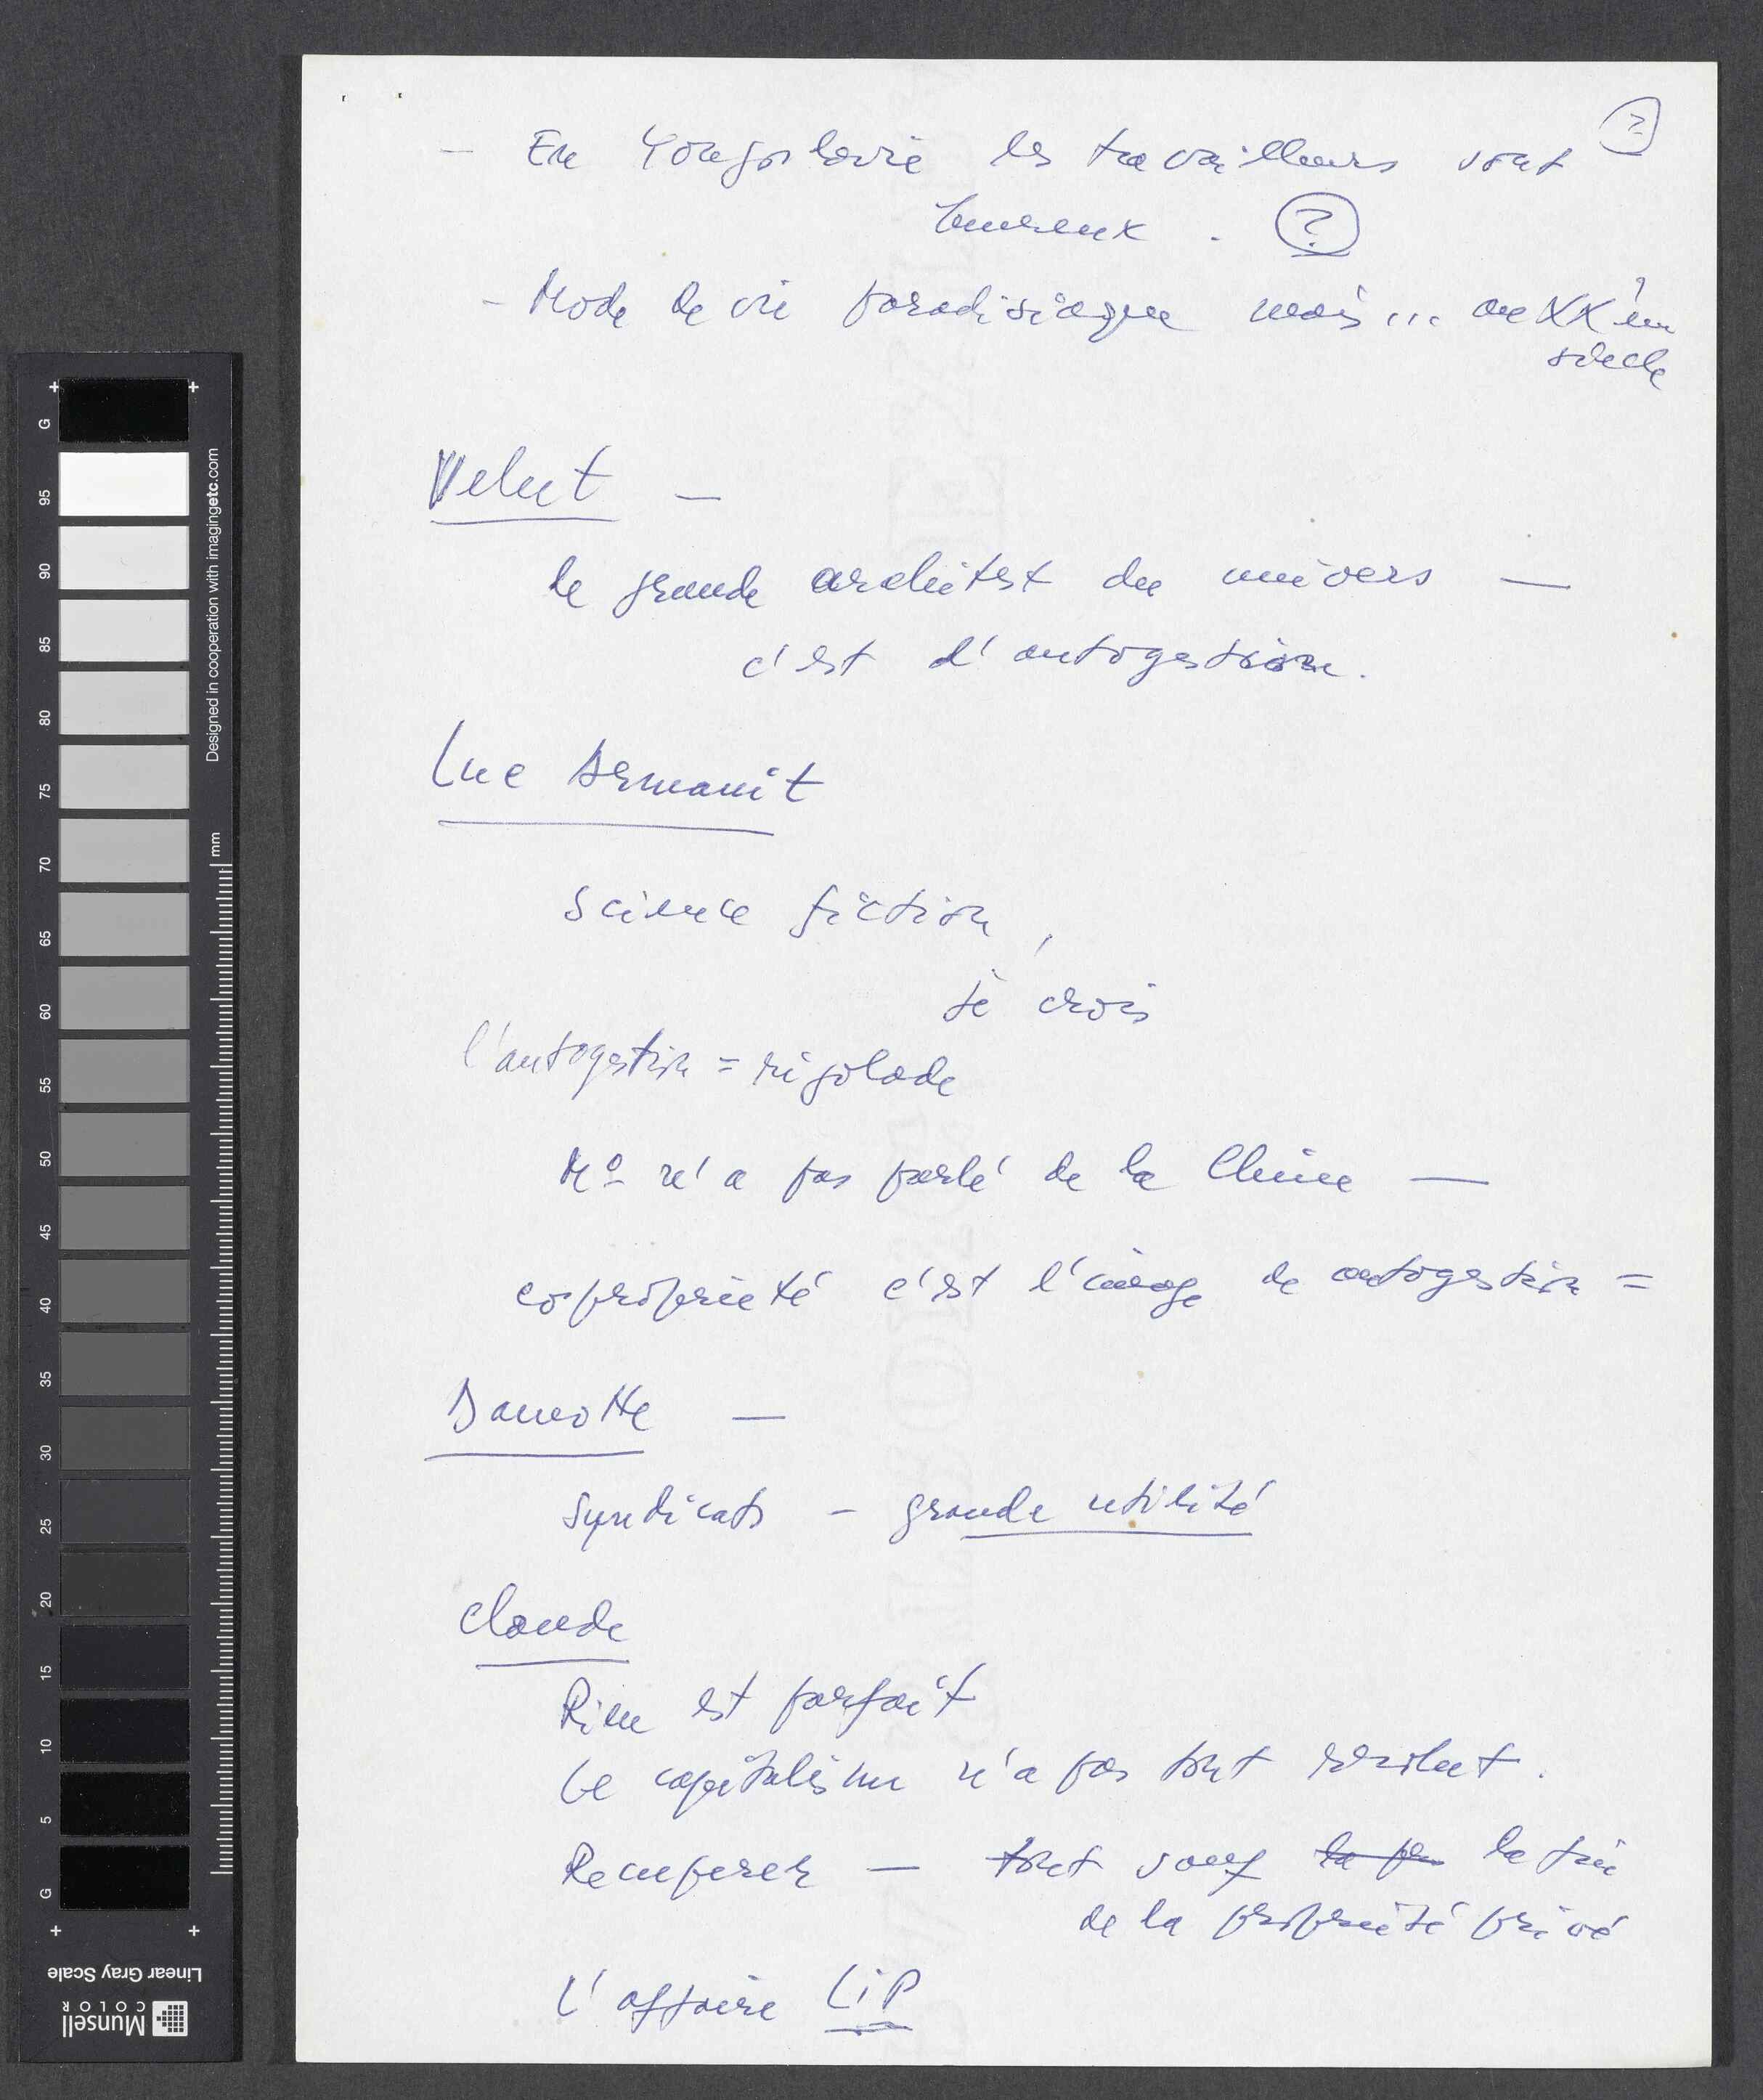 ?
— En Yougoslavie les travailleurs sont
heureux . ?
– Mode de vie paradisiaque mais ... au XXème
siècle
Velut —
le grande architect du univers —
c'est d'autogestion.
Luc
Science fiction,
je crois
l'autogestion = rigolade
Mº n'a pas parlé de la Chine —
copropriété c'est l'image de autogestion =
Damotte —
Syndicats – grande utilité
Claude
Rien est parfait
Le capitalisme n'a pas tout resolut.
Recuperer — tout sauf la fin
de la propriété privé
L'affaire LiP
G
95
90
85
80
75
70
65
60
55
50
45
40
35
30
25
20
15
10
5
G
mm
Designed in cooperation with imagingetc.com
Linear Gray Scale
Munsell
COLOR